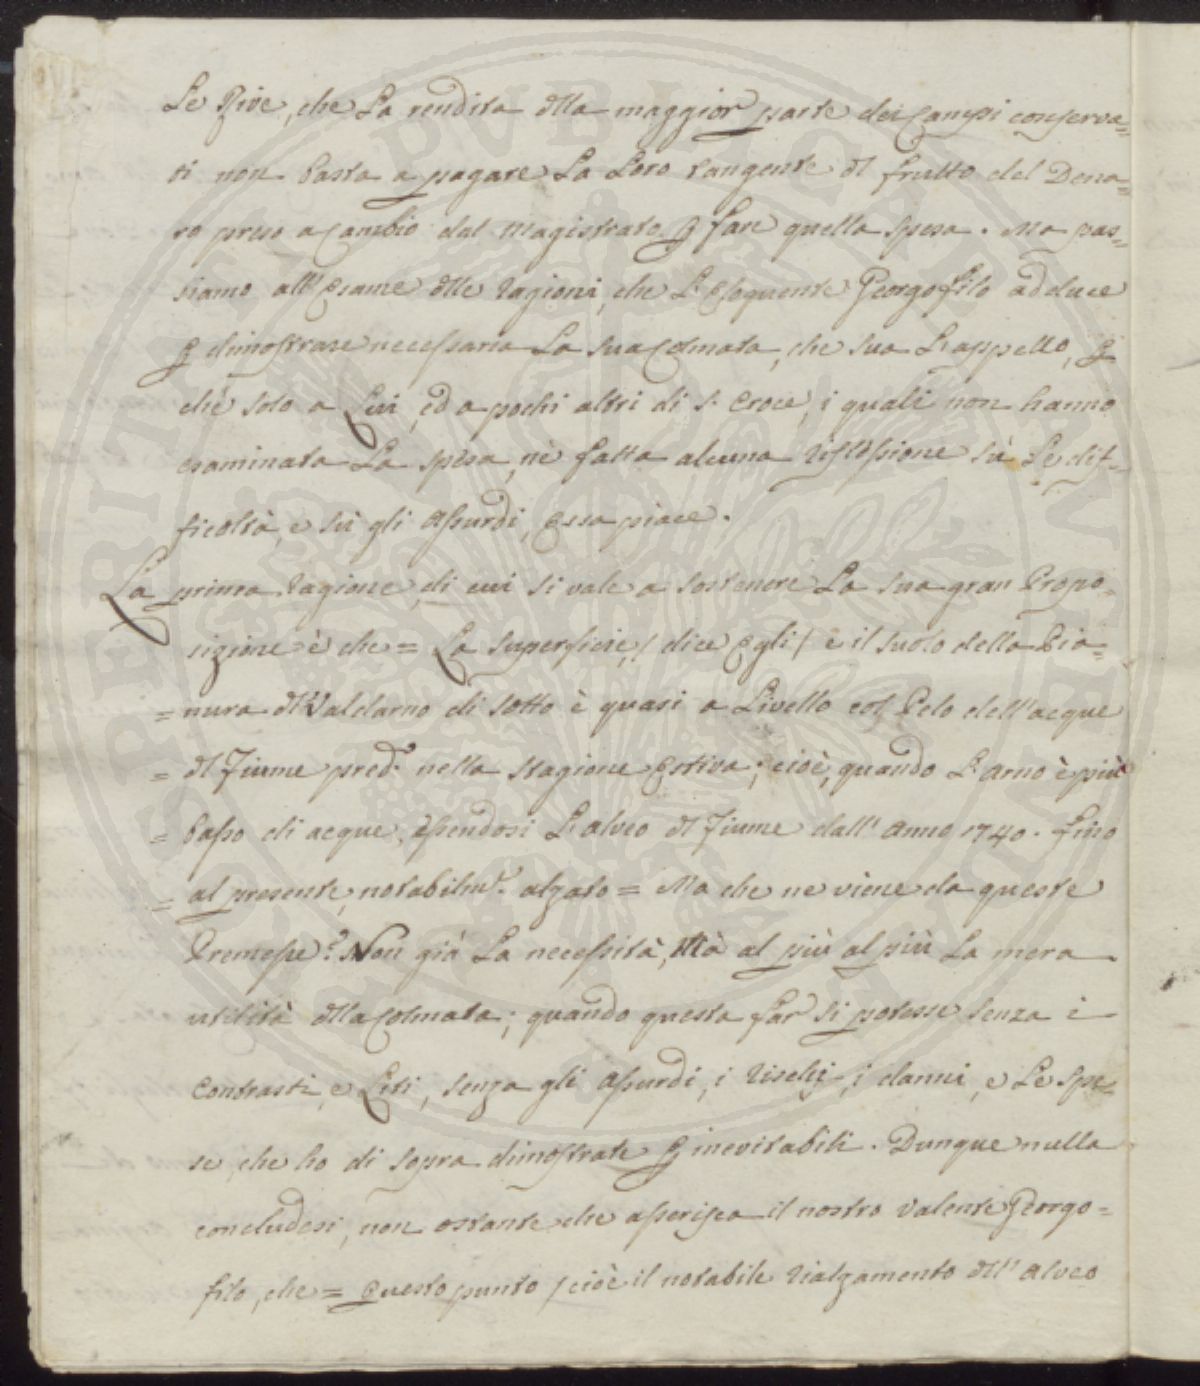 Le Rive, che La rendita dlla maggior parte dei Campi conserva=
ti non basta a pagare La Loro tangente dl frutto del Dena=
ro preso a Cambio dal Magistrato p fare quella spesa. Ma pas=
siamo all' Esame dlle ragioni, che L' Eloquente Georgofilo adduce
p dimostrare necessaria La sua Colmata, che sua L' appello, p
chè solo a Lui, ed a pochi altri di S. Croce, i quali non hanno
esaminata La spesa, nè fatta alcuna riflessione sù Le dif=
ficoltà, e sù gli assurdi, essa piace.
La prima ragione, di cui si vale a sostenere La sua gran Propo=
sizione è che = La superficie, / dice Egli / e il suolo della Pia=
= nura dl Valdarno di sotto è quasi a Livello col Pelo dell' acque
= dl Fiume pred.o nella stagione Estiva; cioè, quando L' Arno è più
= basso di acque, essendosi L' alveo dl Fiume dall' Anno 1740. fino
= al presente, notabilm.e alzato = Ma che ne viene da queste
Premesse? Non già La necessità, Mà al più al più La mera
utilità dlla Colmata; quando questa far si potesse senza i
Contrasti, e Liti, senza gli assurdi, i rischj, i danni, e Le spe=
se, che ho di sopra dimostrate p inevitabili. Dunque nulla
concludesi, non ostante che asserisca il nostro valente Georgo=
filo, che = Questo punto / cioè il notabile rialzamento dll' alveo